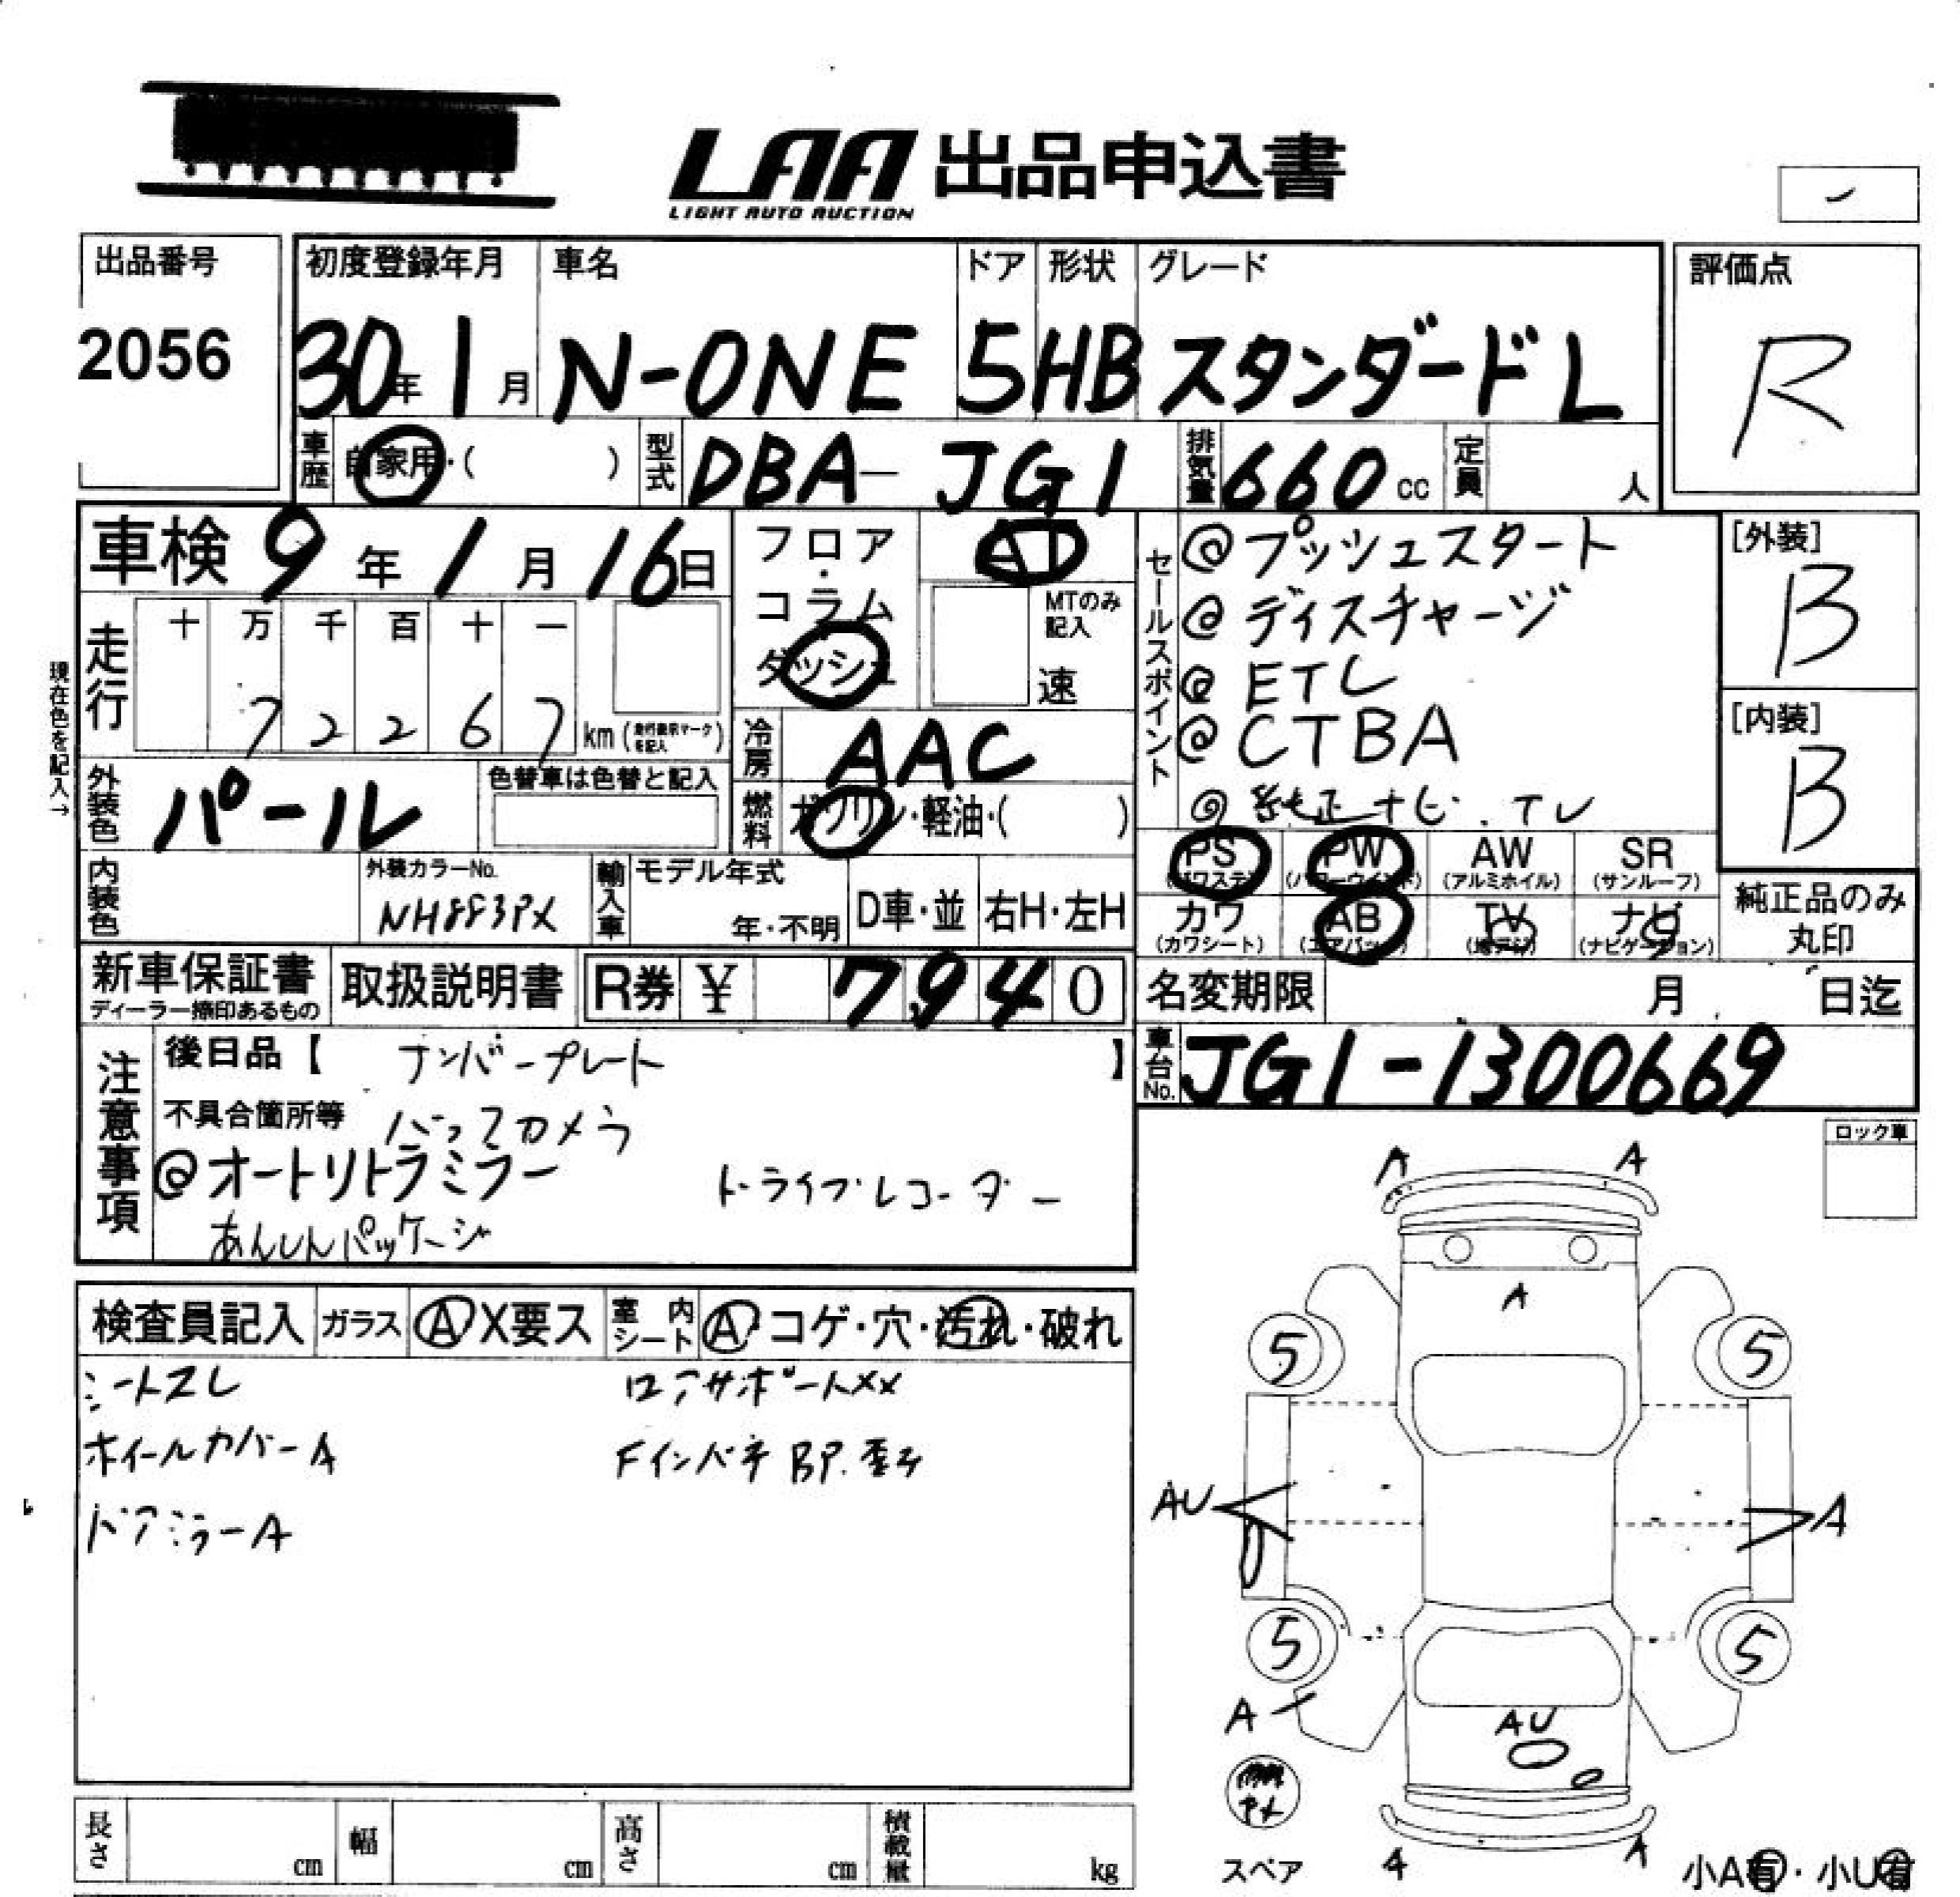 LAA 出品申込書
LIGHT AUTO AUCTION
出品番号
2056
初度登録年月 車名 ドア 形状 グレード
30年1月 N-ONE 5 HB スタンダード L
評価点
R
車歴 自家用・( ) 型式 DBA-JG1 排気量 660cc 定員 人
車検 9年1月16日
フロア・コラム
ダッシュ
AT
MTのみ記入
速
セールスポイント
@プッシュスタート
@ディスチャージ
@ETC
@CTBA
@純正ナビ.TV
[外装]
B
[内装]
B
現在色を記入→
走行 十 万 千 百 十 一
7 2 2 6 7 km (走行表示マークを記入)
冷房 AAC
燃料 ガソリン・軽油・( )
外装色 パール 色替車は色替と記入
内装色 外装カラーNo. NH883PX
輸入車 モデル年式 年・不明 D車・並 右H・左H
PS (パワステ) PW (パワーウインド) AW (アルミホイル) SR (サンルーフ)
カワ (カワシート) AB (エアバック) TV (地デジ) ナビ (ナビゲーション)
純正品のみ丸印
新車保証書
ディーラー捺印あるもの
取扱説明書
R券 ¥ 7,940
名変期限 月 日迄
車台No. JG1-1300669
注意事項
後日品【 ナンバープレート 】
不具合箇所等 バックカメラ
@オートリトラミラー ドライブレコーダー
あんしんパッケージ
ロック車
検査員記入 ガラス A X要ス 室内シート A コゲ・穴・汚れ・破れ
シートスレ ロアサポートXX
ホイールカバーA Fインパネ BP.歪み
ドアミラーA
A A
A
5 5
AU A
5 5
A
AU
スペア
A A
小A有・小U有
長さ cm 幅 cm 高さ cm 積載量 kg